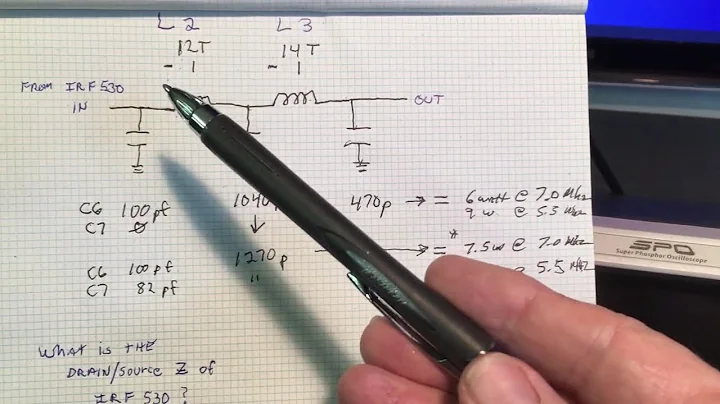 L 2 L 3
12T 14T
- 1 - 1
FROM IRF 530
IN OUT
C6 100pf 1040p 470p → = 6 watt @ 7.0 Mhz
C7 0 ↓ 9 w @ 5.5 Mhz
1270 p → = * 7.5w @ 7.0 Mhz
C6 100pf " 5.5 MHZ
C7 82 pf
WHAT is THE
DRAIN/source Z of
IRF 530 ?
SPO
Super Phosphor Oscilloscope